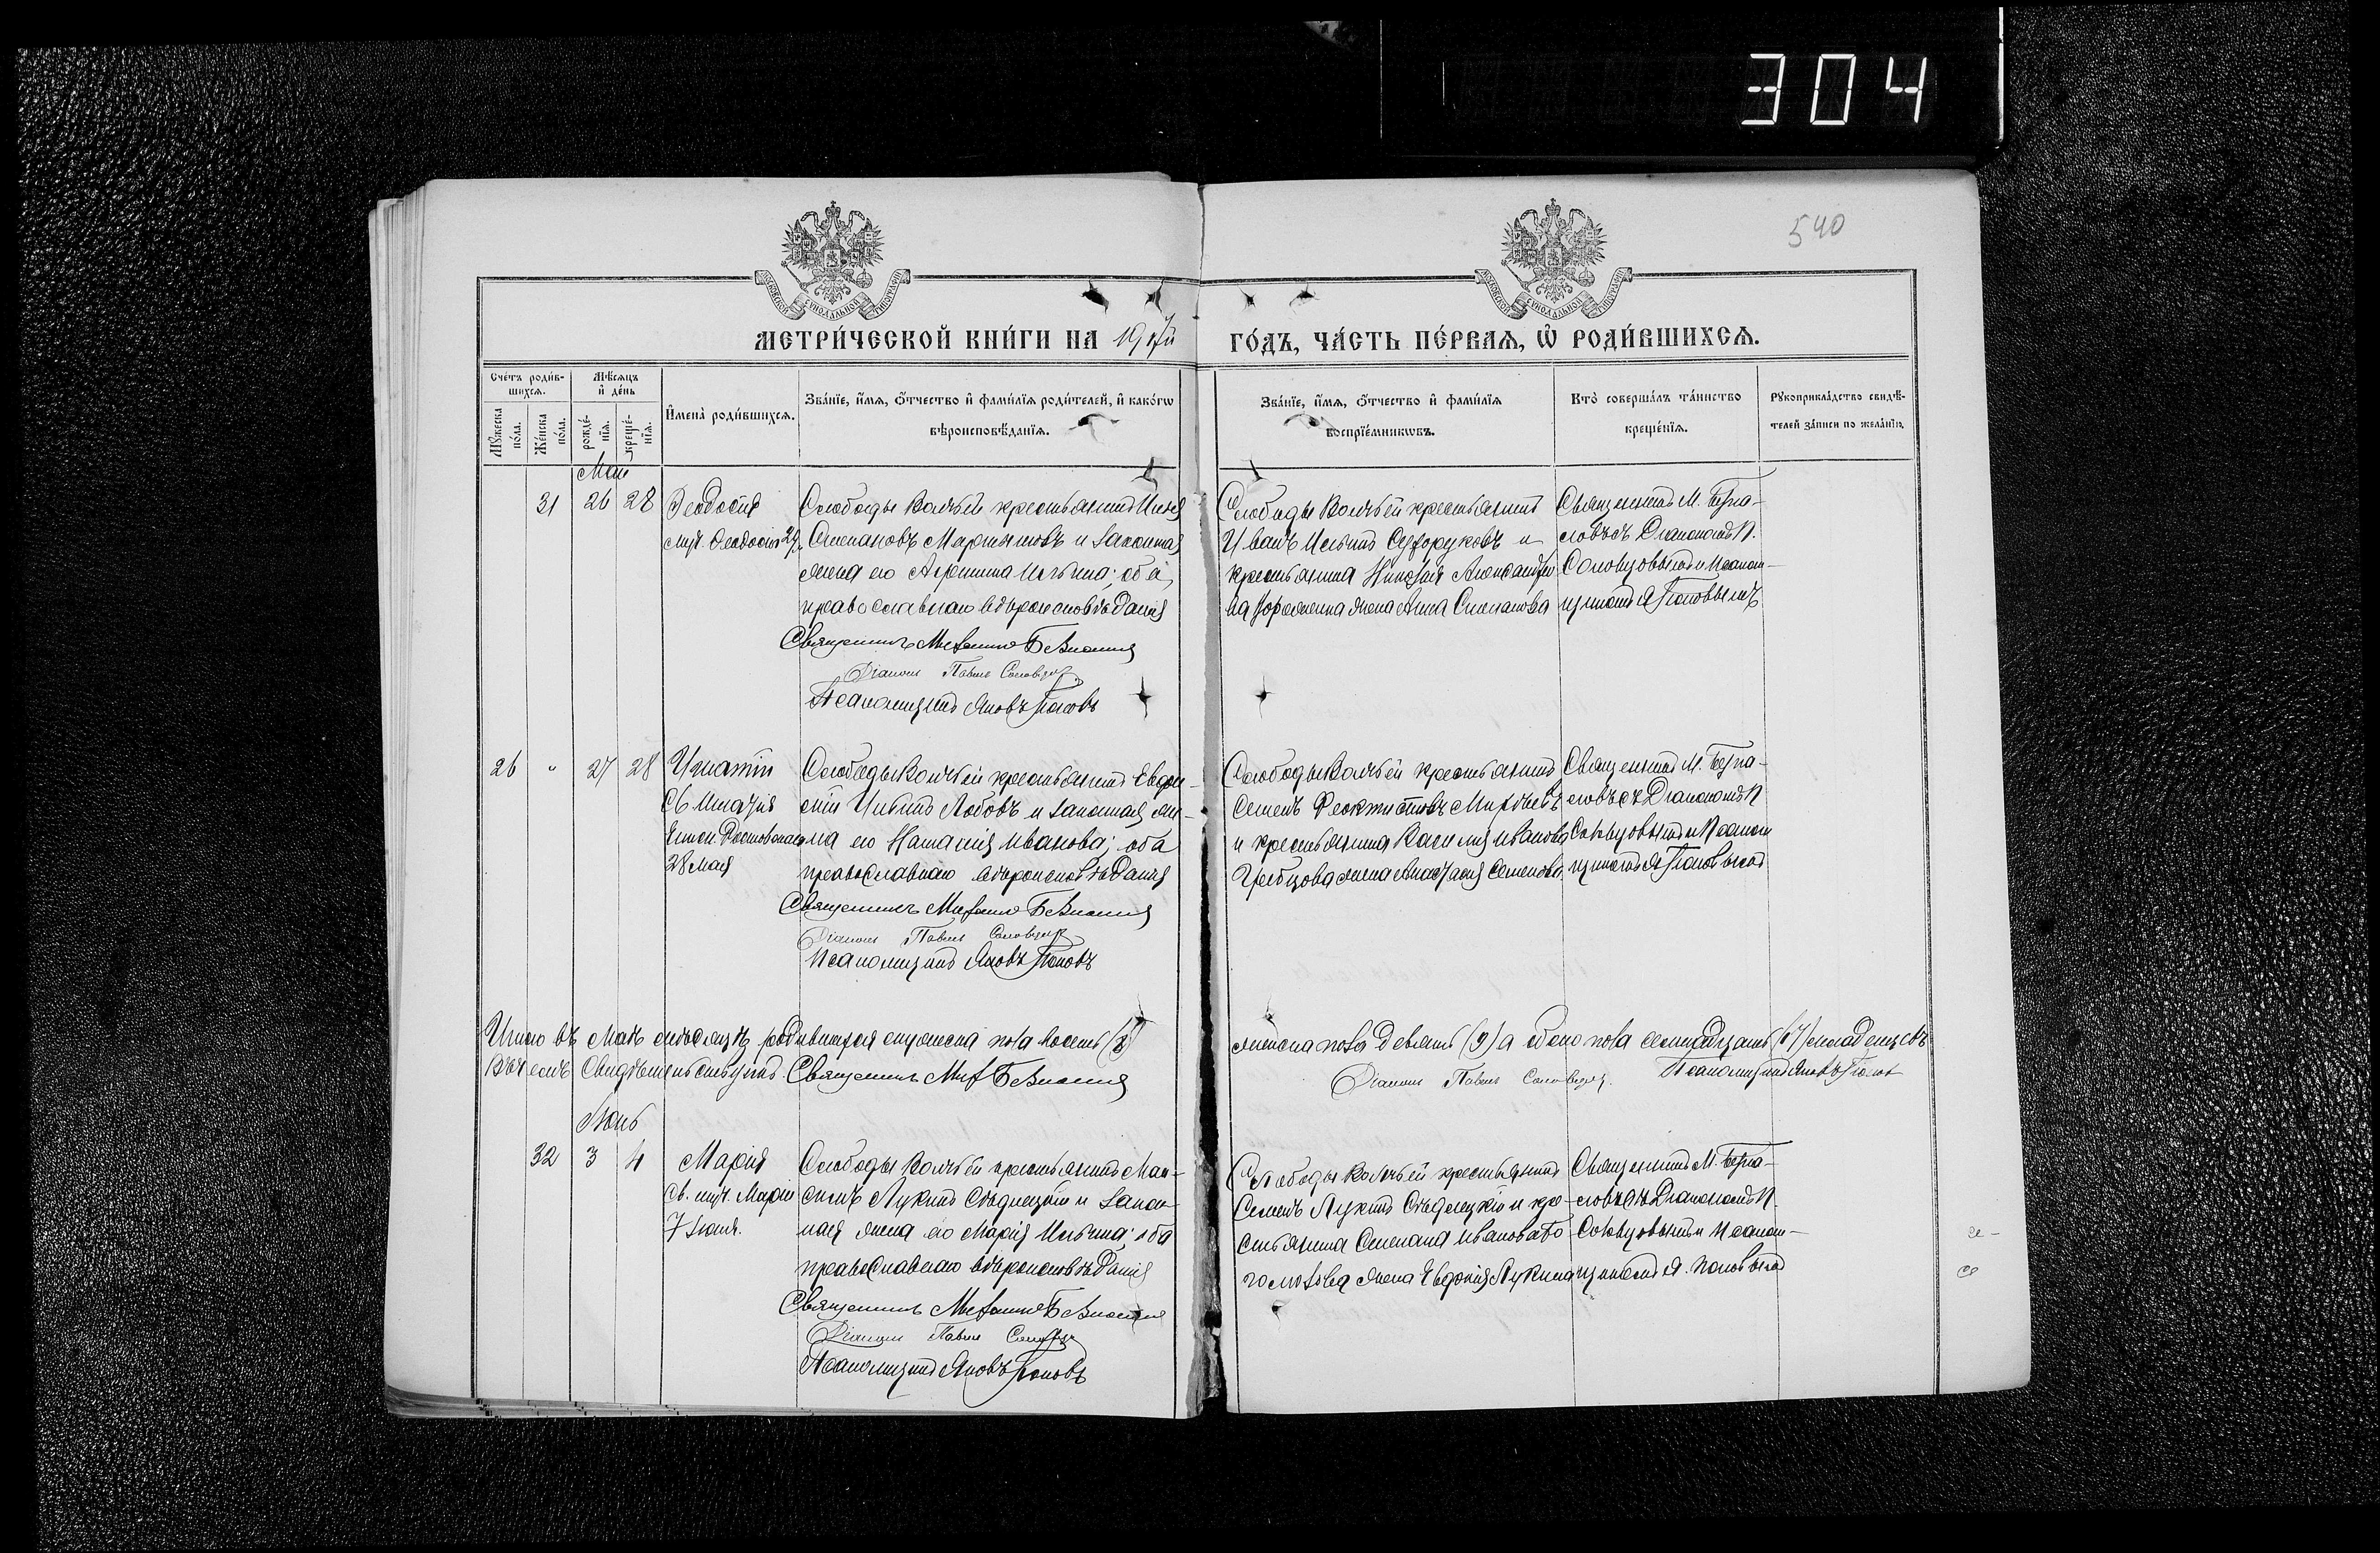 304
540
МЕТРИ́ЧЕСКОЙ КНИ́ГИ НА 19 ГО́ДЪ, ЧА́СТЬ ПЕ́РВАЯ, Ѡ РОДИ́ВШИХСЯ.
Сче́тъ роди́в-
шихся.
Мꙋжеска по́ла.
Же́нска по́ла.
Мѣ́сяцъ
и де́нь
рожде́-
нїя.
креще́-
нїя.
Имена̀ роди́вшихся.
Зва́нїе, и́мя, о́тчество и фами́лїя роди́телей, и како́гѡ
вѣроисповѣ́данїя.
Зва́нїе, и́мя, о́тчество и фами́лїя
воспрїе́мникѡвъ.
Кто̀ соверша́лъ та́инство
креще́нїя.
Рꙋкоприкла́дство свидѣ́-
телей за́писи по жела́нїю.
Май
31 26 28 Ѳеодосія
муч. Ѳеодосіи 29
Слободы Волчьей крестьянинъ Илья
Степановъ Мартыновъ и законная
жена его Агриппина Ильина; оба
православнаго вѣроисповѣданія
Священникъ Михаилъ
Діаконъ Павелъ
Псаломщикъ Яковъ Поповъ
Слободы Волчьей крестьянинъ
Иванъ Ильинъ Сухоруковъ и
крестьянина Николая
жена Анна Степанова
Священникъ М.
съ Діакономъ П.
и Псалом-
щикомъ Я. Поповымъ
26 " 27 28 Игнатій
Св. Игнатія
Епис. Ростовскаго
28 мая
Слободы Волчьей крестьянинъ Евдо-
кимъ Ильинъ Лобовъ и законная же-
на его Наталія Иванова; оба
православнаго вѣроисповѣданія
Священникъ Михаилъ
Діаконъ Павелъ
Псаломщикъ Яковъ Поповъ
Слободы Волчьей крестьянинъ
Семенъ Ѳеоктистовъ
и крестьянина Василія Иванова
жена Анастасія Семенова
Священникъ М.
съ Діакономъ П.
и Псалом-
щикомъ Я. Поповымъ
Итого въ Маѣ мѣсяцѣ родившихся мужеска пола восемь (8)
женска пола девять (9) а обоего пола семнадцать (17) младенцевъ
Въ чемъ свидѣтельствуемъ. Священникъ Мих.
Діаконъ Павелъ
Псаломщикъ Яковъ Поповъ
Іюнь
32 3 4 Марія
Св. муч. Маріи
7 Іюня.
Слободы Волчьей крестьянинъ Мак-
симъ Лукинъ и закон-
ная жена его Марія Ильина; оба
православнаго вѣроисповѣданія
Священникъ Михаилъ
Діаконъ Павелъ
Псаломщикъ Яковъ Поповъ
Слободы Волчьей крестьянинъ
Семенъ Лукинъ и кре-
стьянина Степана Иванова Бо-
гомолова жена Евдокія Лукина
Священникъ М.
съ Діакономъ П.
и Псалом-
щикомъ Я. Поповымъ